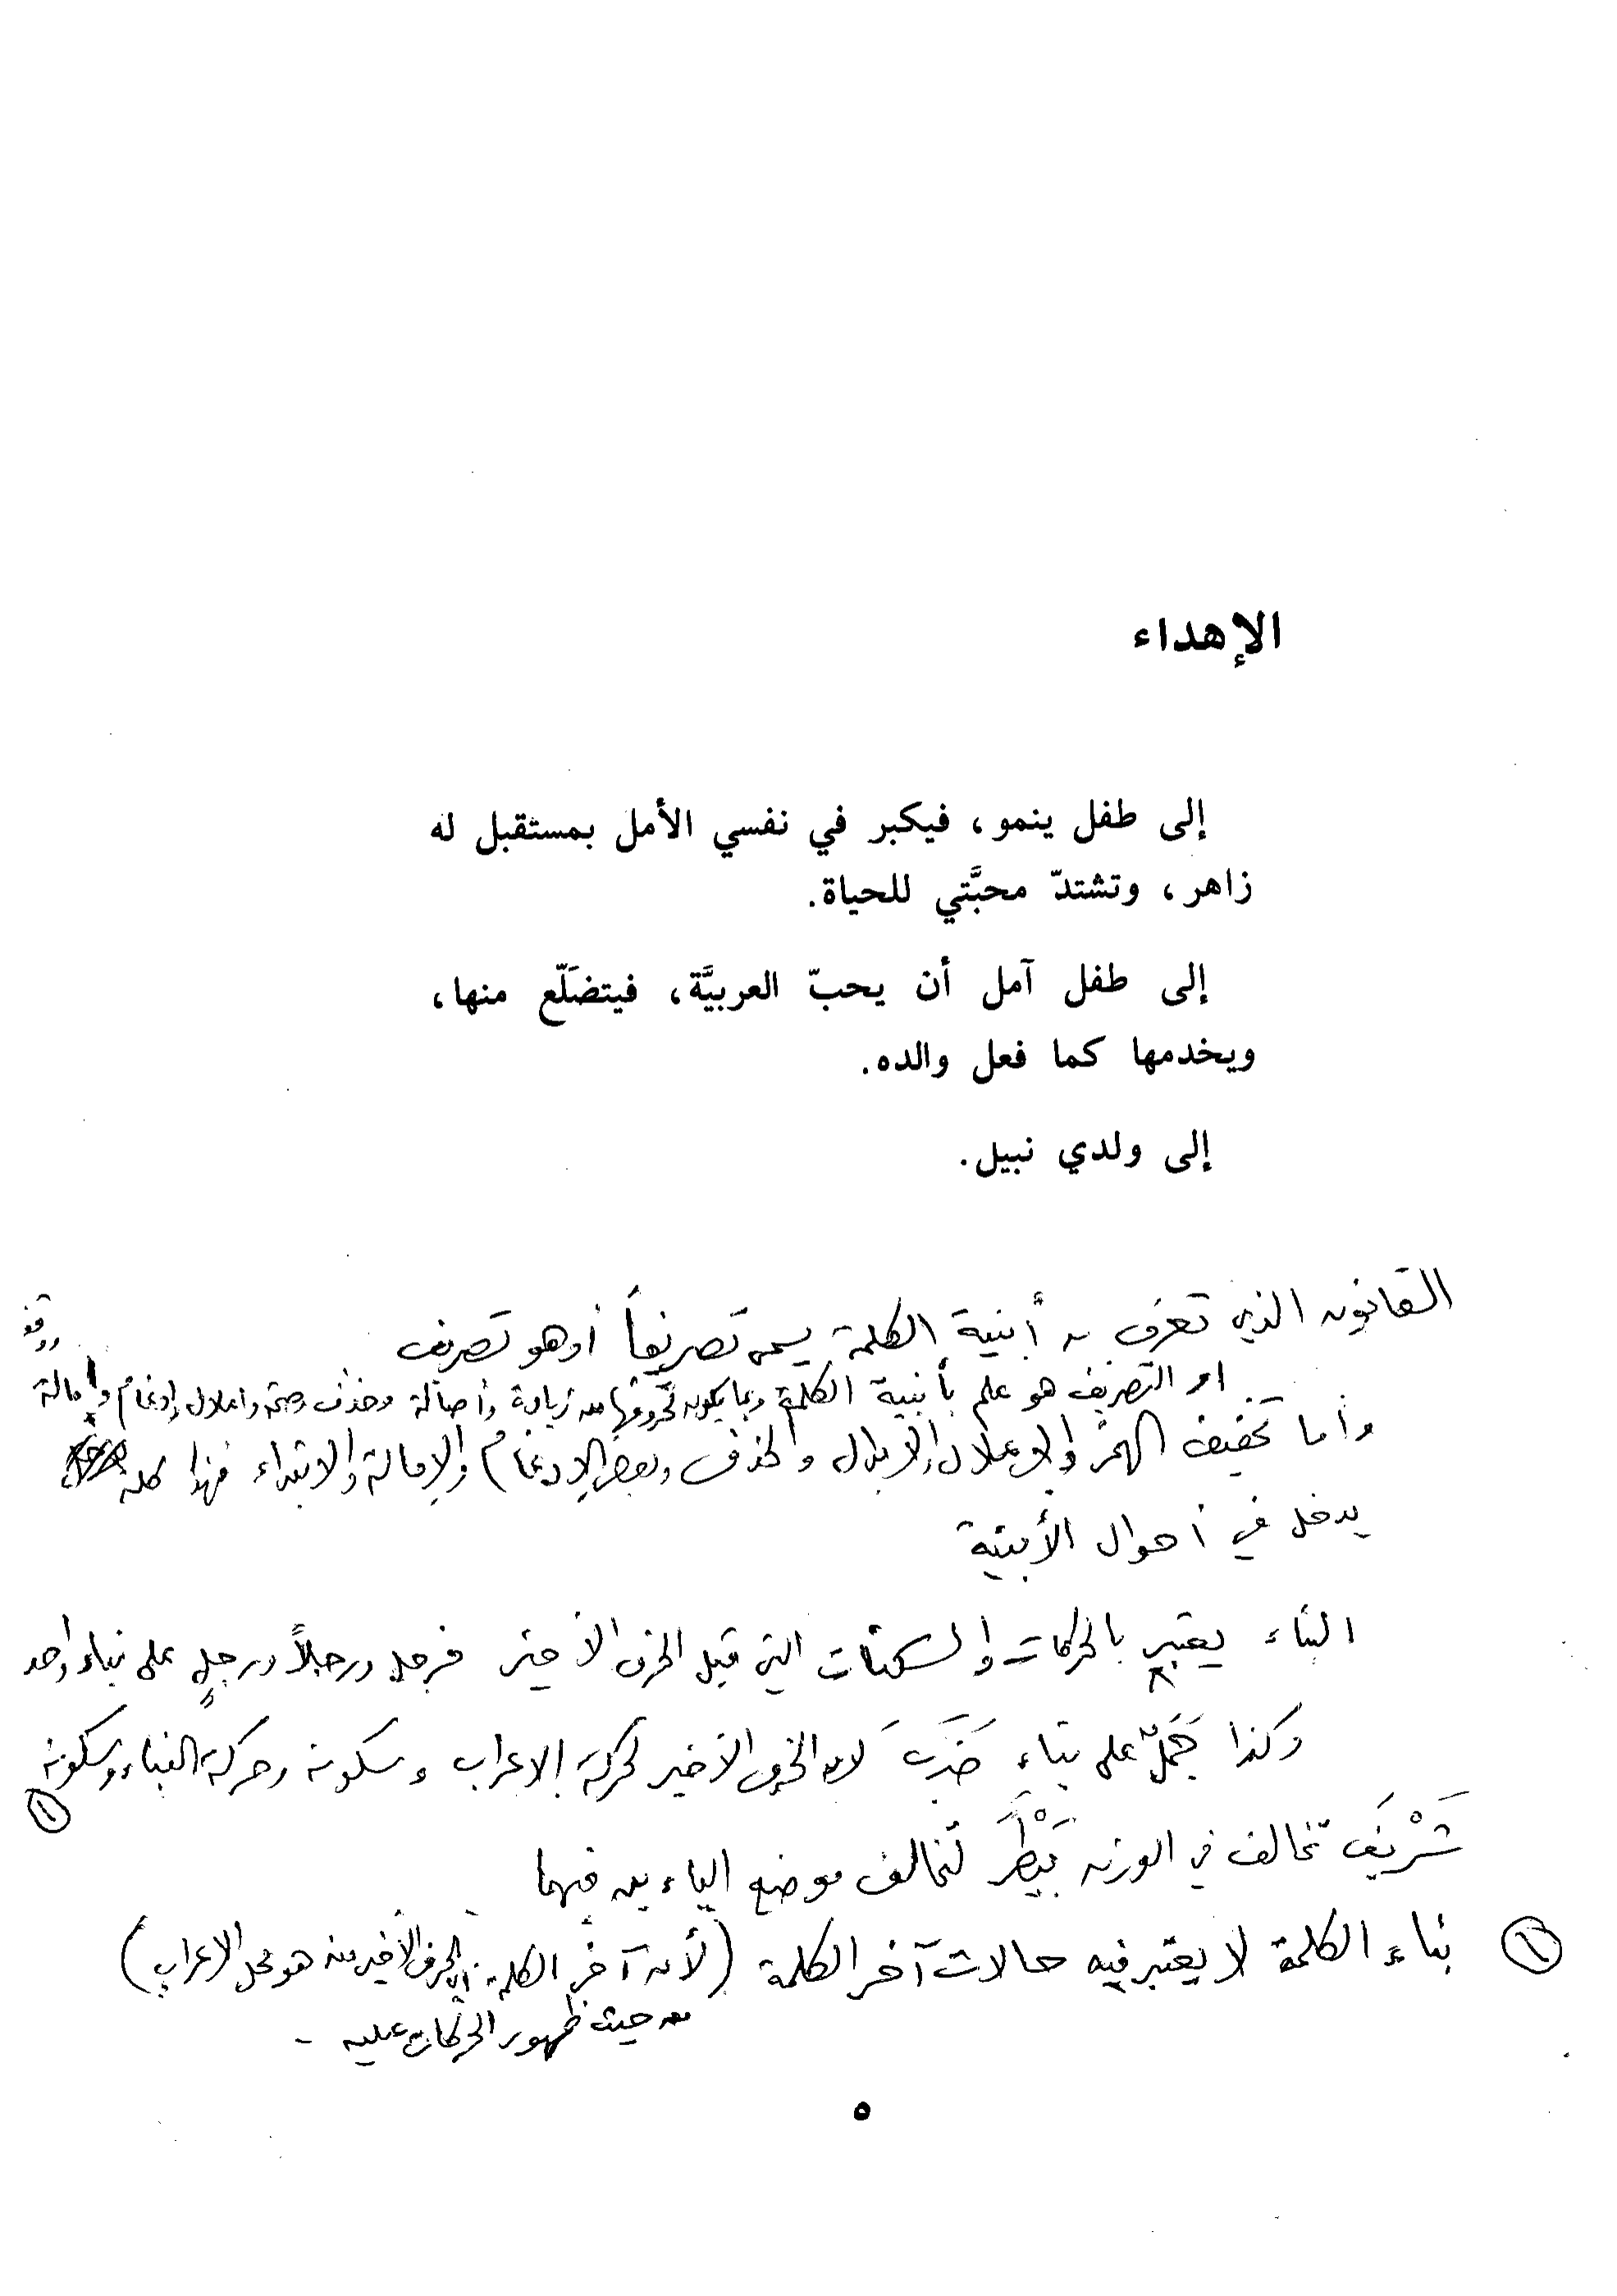 الإهداء
إلى طفل ينمو، فيكبر في نفسي الأمل بمستقبل له
زاهر، وتشتدّ محبَّتي للحياة.
إلى طفل آمل أن يحبّ العربيَّة، فيتضلّع منها،
ويخدمها كما فعل والده.
إلى ولدي نبيل.
القانون الذي تعرف به أبنية الكلمة يسمى تصريفاً أو هو تصريف
او التصريف هو علم بأبنية الكلمة وبما يكون لحروفها من زيادة وأصالة وحذف وصحة واعلال وإدغام وإمالة
وأما تخفيف الهمز والإعلال والإبدال والحذف وبعض الإدغام والإمالة والابتداء فهذا كله
يدخل في أحوال الأبنية
البناء يعتبر بالحركات والسكنات التي قبل الحرف الأخير فرجل ورجلاً ورجلٍ على بناء واحد
وكذا جَمَل على بناء ضَرَبَ لان الحرف الأخير لحركة الاعراب وسكونه وحركة البناء وسكونه
①
شَرْيَفَ تخالف في الوزن بَيْطَرَ لتخالف موضع الياءين فيهما
① بناء الكلمة لا يعتبر فيه حالات آخر الكلمة (لأن آخر الكلمة أي الحرف الأخير منه هو محل الاعراب)
من حيث ظهور الحركات عليه -
٥